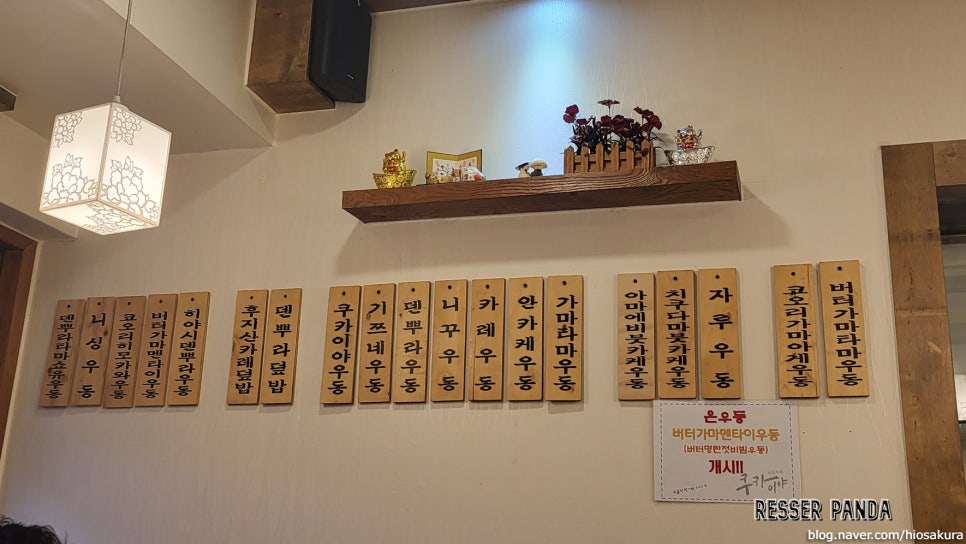 덴뿌라타마쇼유우동
니싱우동
쿄오리히모카와우동
버터가마멘타이우동
히야시덴뿌라우동
후지산카레덮밥
덴뿌라덮밥
쿠카이야우동
기쯔네우동
덴뿌라우동
니꾸우동
카레우동
안카케우동
가마타마우동
아마에비붓카케우동
치쿠다마붓카케우동
자루우동
코오리가마아게우동
버터가마타마우동
온우동
버터가마멘타이우동
(버터명란젓비빔우동)
개시!!
쿠카이야
RESSER PANDA
blog.naver.com/hiosakura